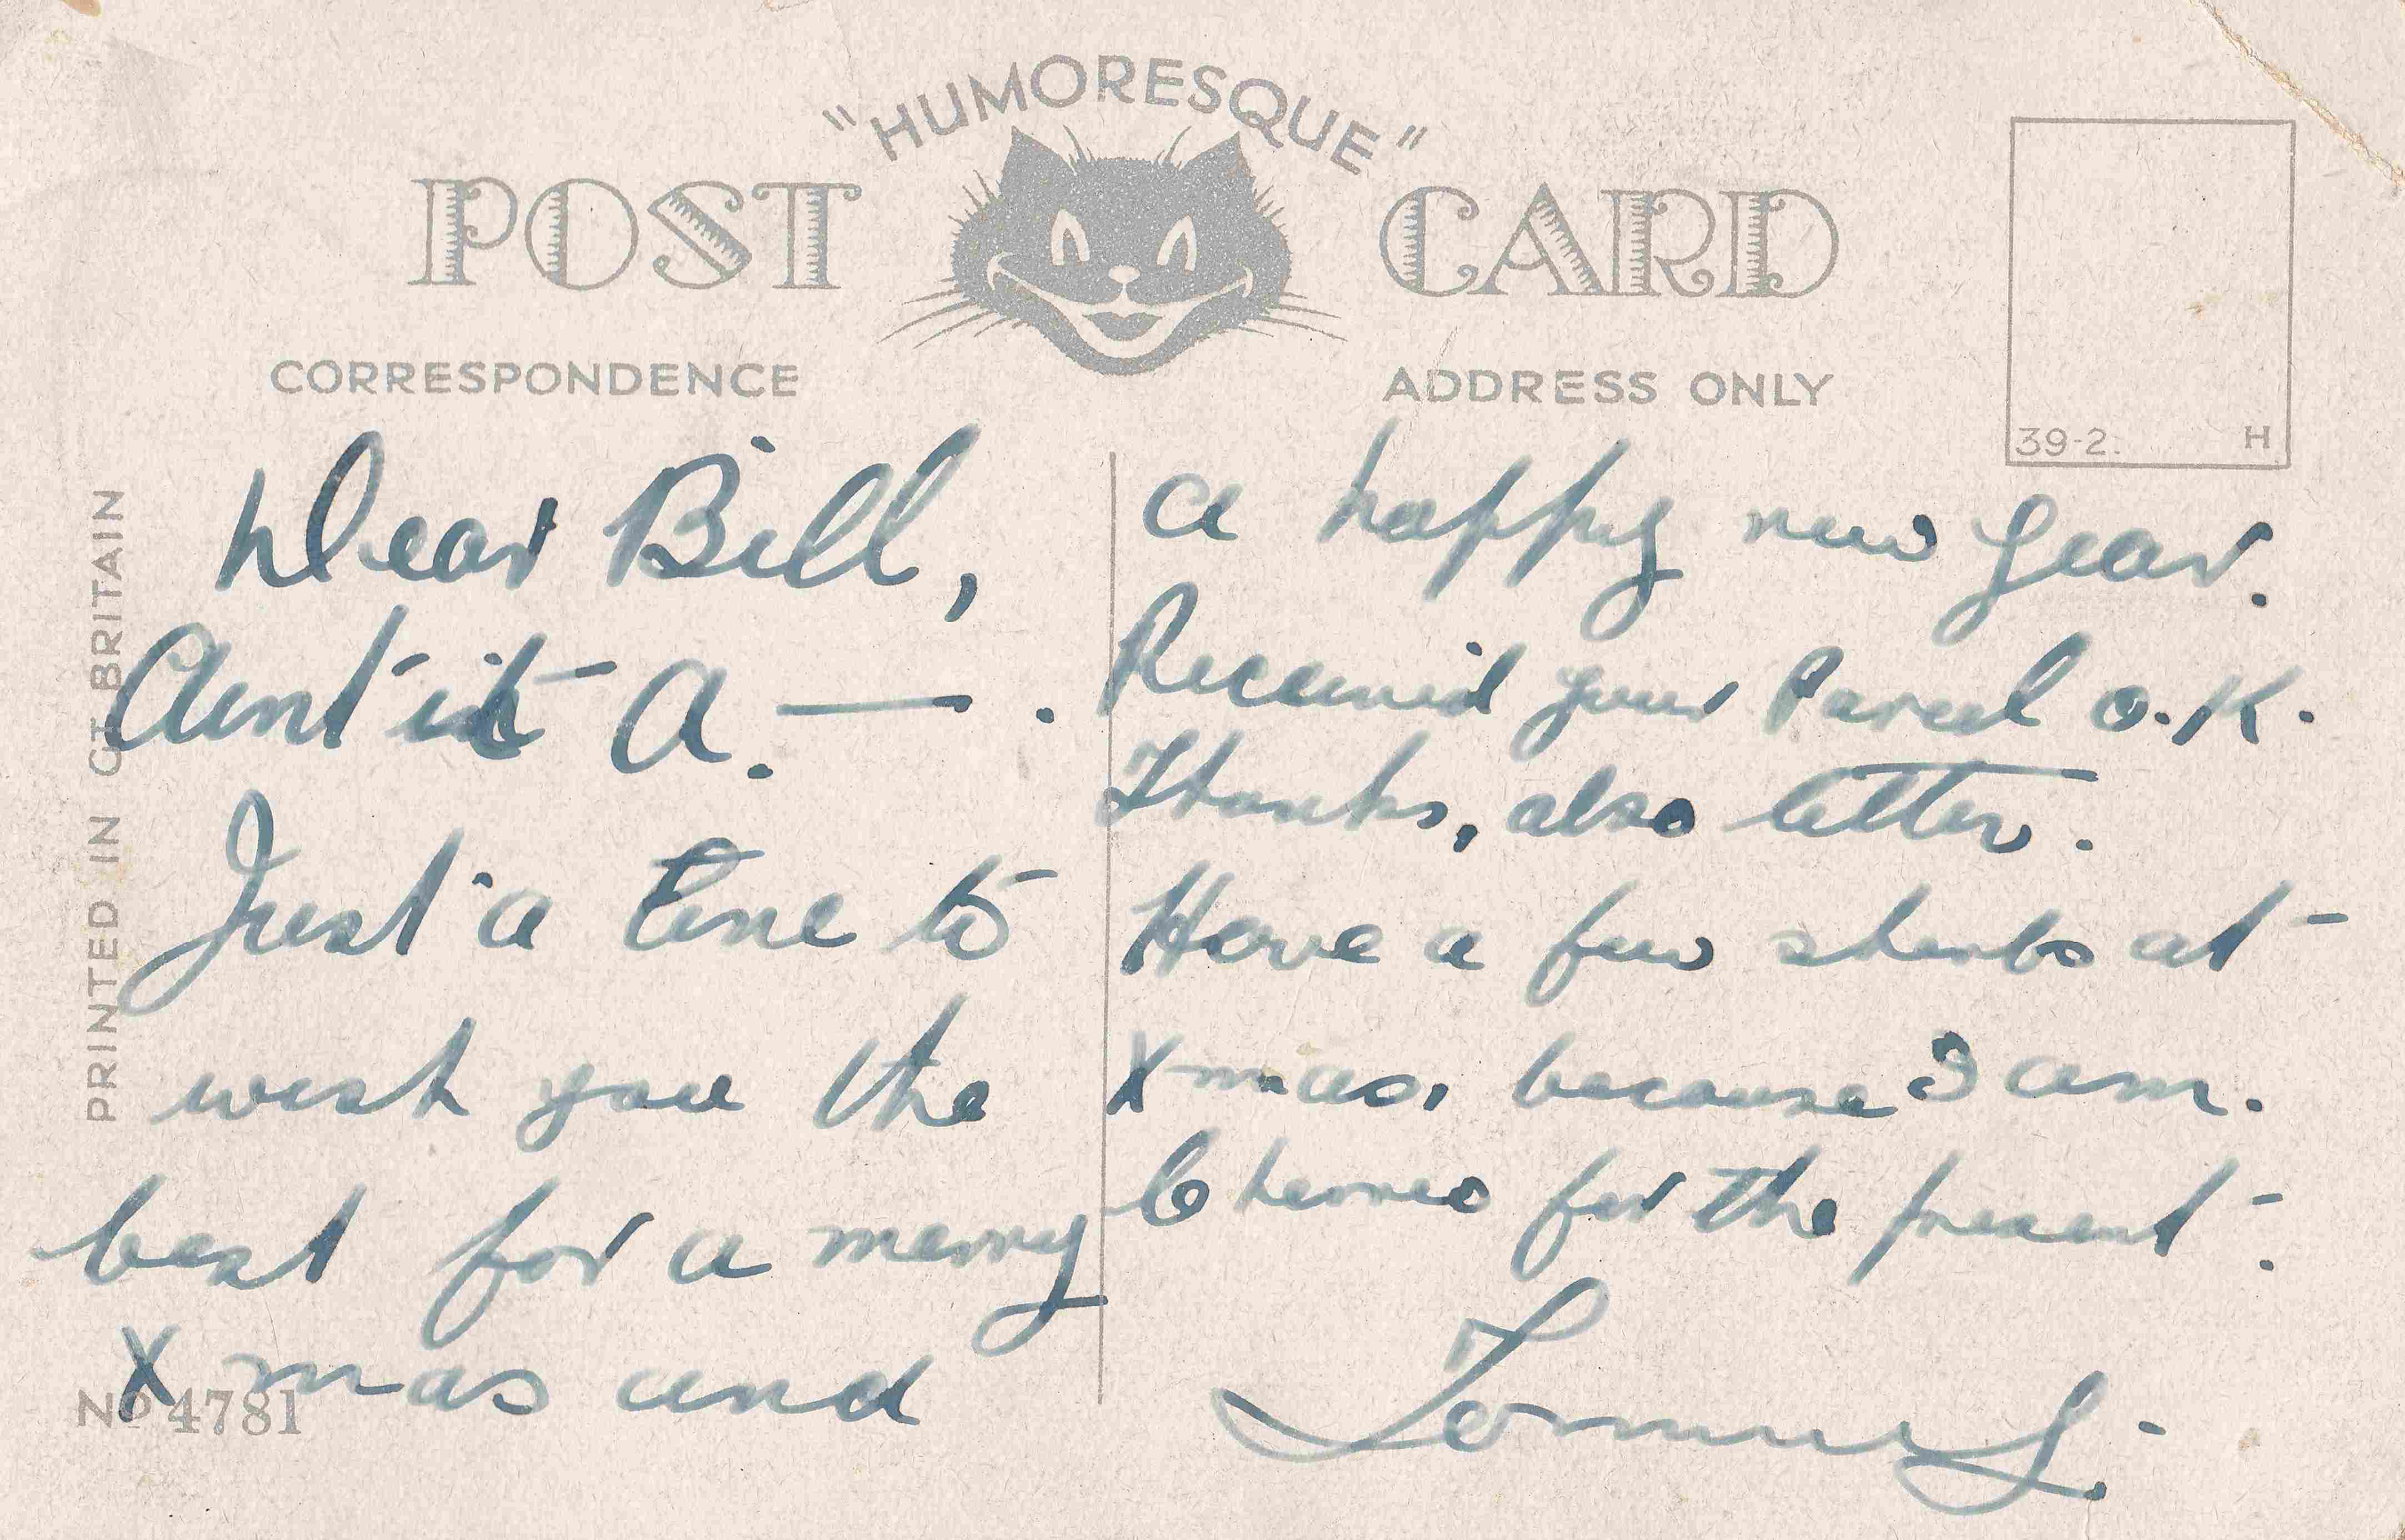 "HUMORESQUE"
POST CARD
CORRESPONDENCE
ADDRESS ONLY
39-2. H
PRINTED IN GT BRITAIN
Dear Bill,
Aint it A. — .
Just a line to
wish you the
best for a merry
Xmas and
No 4781
a happy new year.
Received your Parcel O.K.
Thanks, also letter.
Have a few at
Xmas, because I am.
Cheerio for the present.
Tommy.